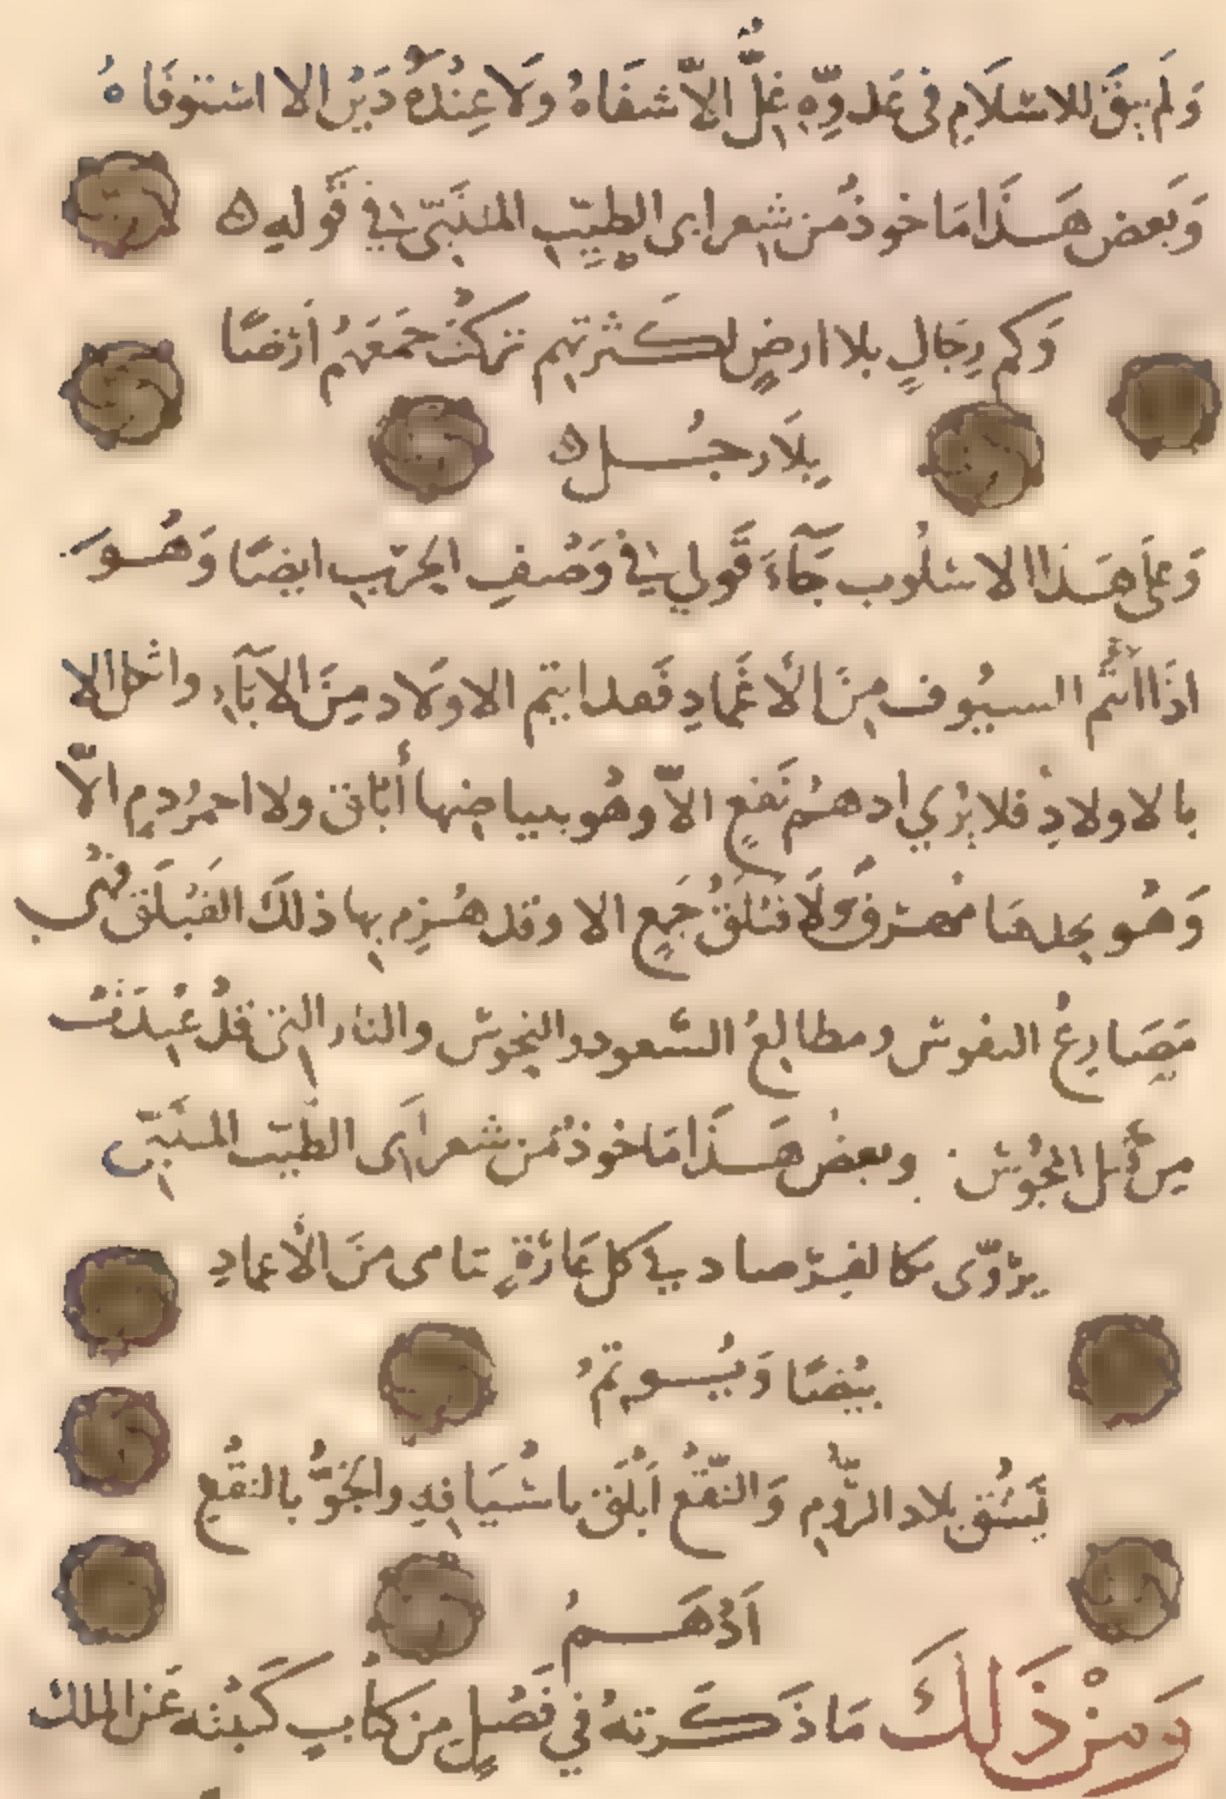 وَلَم يبقَ للاسلَامِ فى عَدوِّهِ غِلٌّ الاّ شفَاهُ وَلا عِنْدَهُ دَيْن الا استوفَاهُ
وَبَعض هَذَا مَاخوذ من شِعر ابى الطيِّبِ المتنَبّى في قَولهِ ه
وَكم رِجَالٍ بلا ارضٍ لكَثرتهم تركتُ جمَعَهُم ارْضًا
بِلَا رجُل ه
وَعلَى هَذا الاسلُوب جَآءَ قَولي في وَصْفِ الحَرب ايضًا وَهُوَ
اذَا ايتُم السيُوف مِنَ الأغمَادِ فَعد ايتم الاولاد مِنَ الآبَآءِ واثكل الا
بالاولادِ فلا يُرى ادهمُ نَقعٍ الاّ وهُو ببياضها أبلق ولا احمرُ دمٍ الاّ
وَهُو بحدها مُهَرَق ولَا فَيْلَقُ جَمعٍ الا وقد هُزِم بها ذلكَ الفَيْلَق فهى
مَصَارِعُ النفوس ومطالعُ السّعود والنحوس والنار التى قدْ عُبدَتْ
مِن قبل المجُوس . وبعضُ هَذَا مَاخوذ من شعر اَبى الطيّب المتنَبّى
يروّى بكالفِرصاد في كل غَارَةٍ يتامى منَ الأغمادِ
بيْضًا وَيُوتمُ
يَشُق بلاد الرُّومِ وَالنَّقْعُ اَبْلَق باسْيَافِهِ والجَوُّ بالنقْعِ
اَدْهَمُ
وَمِنْ ذَلكَ مَا ذَكَرتهُ في فَصْلٍ مِن كتابٍ كَتبتُه عَن الملك